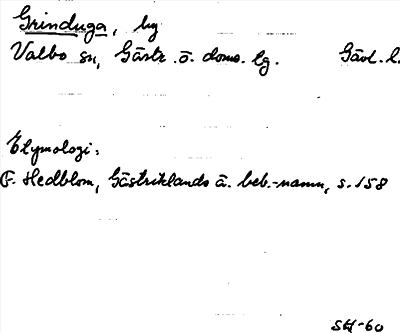 Grinduga, by
Valbo sn, Gästr. ö. doms. lg. Gävl. l.
Etymologi:
F. Hedblom, Gästriklands ä. beb.-namn, s. 158
SH-60